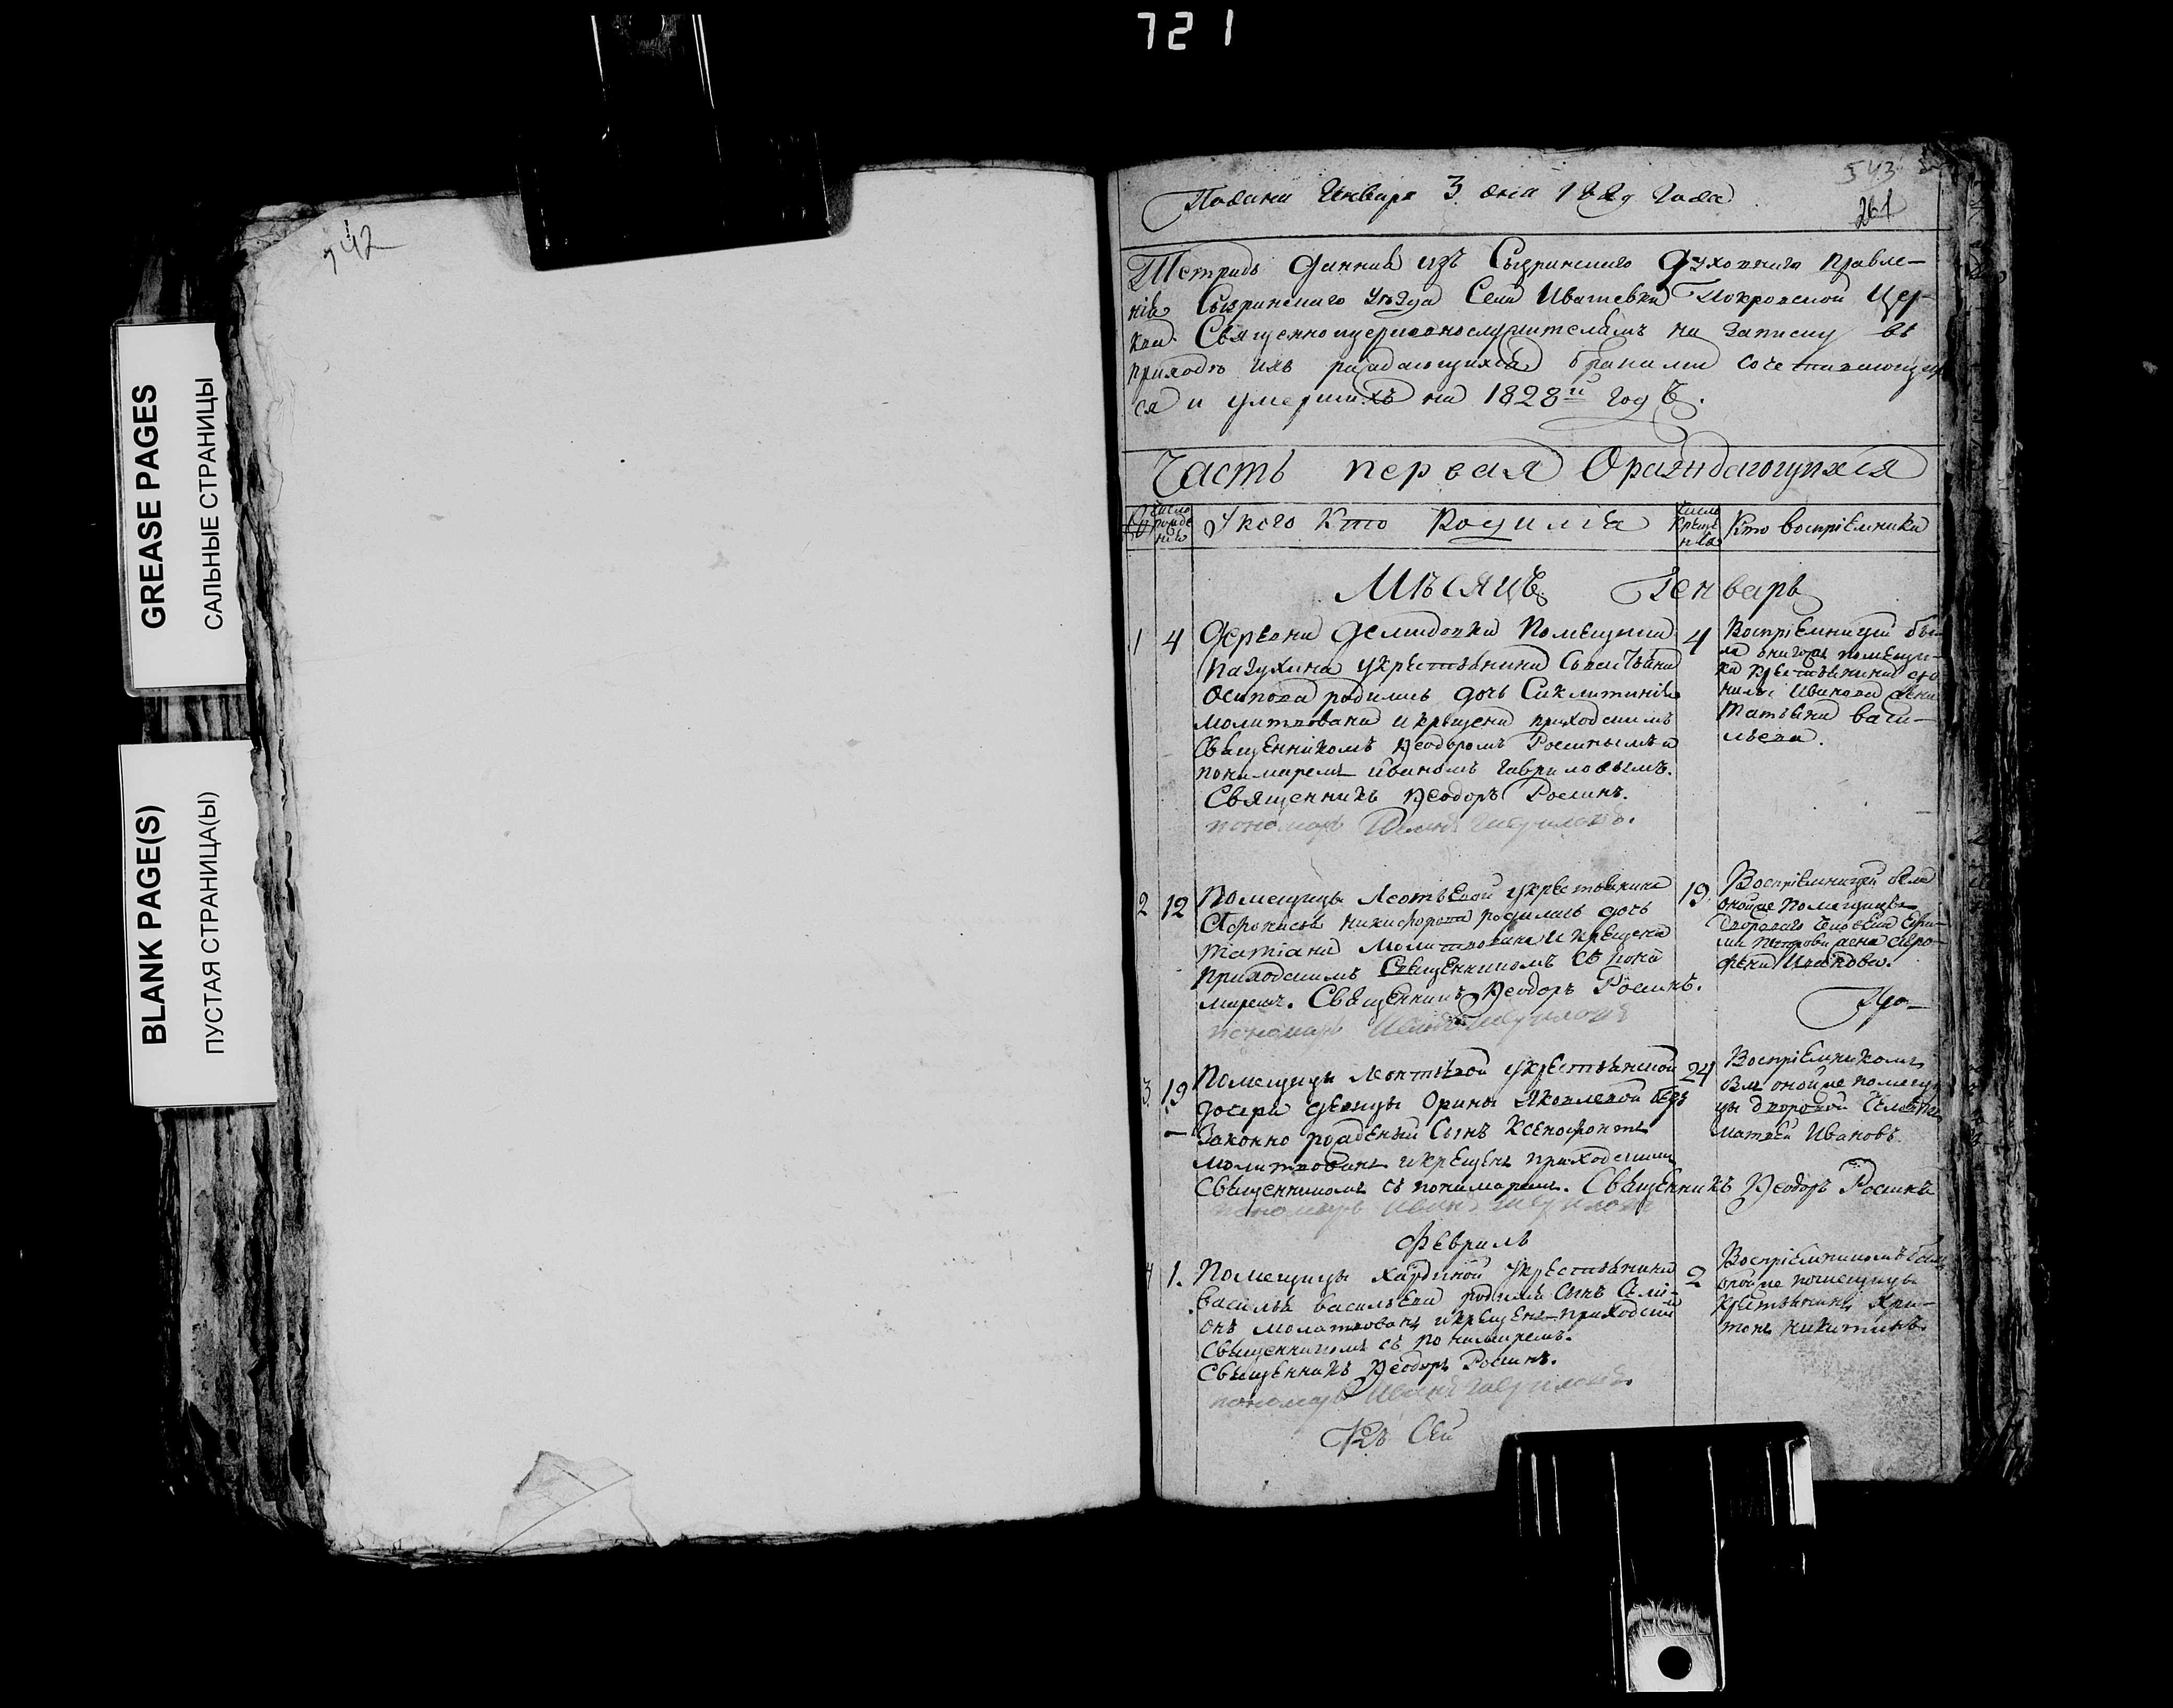 721
GREASE PAGES
САЛЬНЫЕ СТРАНИЦЫ
BLANK PAGE(S)
ПУСТАЯ СТРАНИЦА(Ы)
542
543
261
Подана Генваря 3 дня 1829 года
Тетрадь данная изъ Сызранскаго Духовнаго Правле-
нія Сызранскаго уѣзда Села Ивашевки Покровской Цер-
кви Священноцерковнослужителямъ на записку въ
приходѣ ихъ раждающихся браками сочетавающих
ся и умершихъ на 1828й годъ.
Часть первая О раждающихся
число рожде нія
У кого кто родился
число креще нія
Кто воспріемники
Мѣсяцъ Генварь
1 4
Деревни Демидовки Помещика
Пазухина у крестьянина
Осипова родилась дочь Синклитикія
молитвована и крещена приходскимъ
Священникомъ Ѳеодоромъ Росинымъ и
пономаремъ Иваномъ Гавриловымъ.
Священникъ Ѳеодоръ Росинъ.
пономарь Иванъ Гавриловъ.
4
Воспріемницей бы-
ла онагожъ помещи-
ка крестьянина
Иванова жена
Татьяна Васи-
льева.
2 12
Помещицы Леонтьевой у крестьянина
Афонасья Никифорова родилась дочь
Татіана молитвована и крещена
приходскимъ Священникомъ съ поно
маремъ. Священникъ Ѳеодоръ Росинъ.
пономарь Иванъ Гавриловъ
19.
Воспріемницей была
оной же помещицы
Дворового человека
Петрова жена
Иванова.
Про-
3. 19
Помещицы Леонтьевой у крестьянской
дочери девицы Орины Яковлевой безъ
законно рожденый сынъ Ксенофонтъ
молитвованъ и крещенъ приходскимъ
Священникомъ съ пономаремъ. Священникъ Ѳеодоръ Росинъ
пономарь Иванъ Гавриловъ
24
Воспріемникомъ
былъ оной же помещи
цы дворовой человекъ
Матвей Ивановъ.
Февраль
4 1.
Помещицы Хардиной у крестьянина
Василья Васильева родился сынъ Семи-
онъ молитвованъ и крещенъ приходским
Священникомъ съ пономаремъ.
Священникъ Ѳеодоръ Росинъ.
пономарь Иванъ Гавриловъ
2
Воспріемникомъ былъ
оной же помещицы
крестьянинъ Хри-
тонъ Никитинъ.
Къ Сей